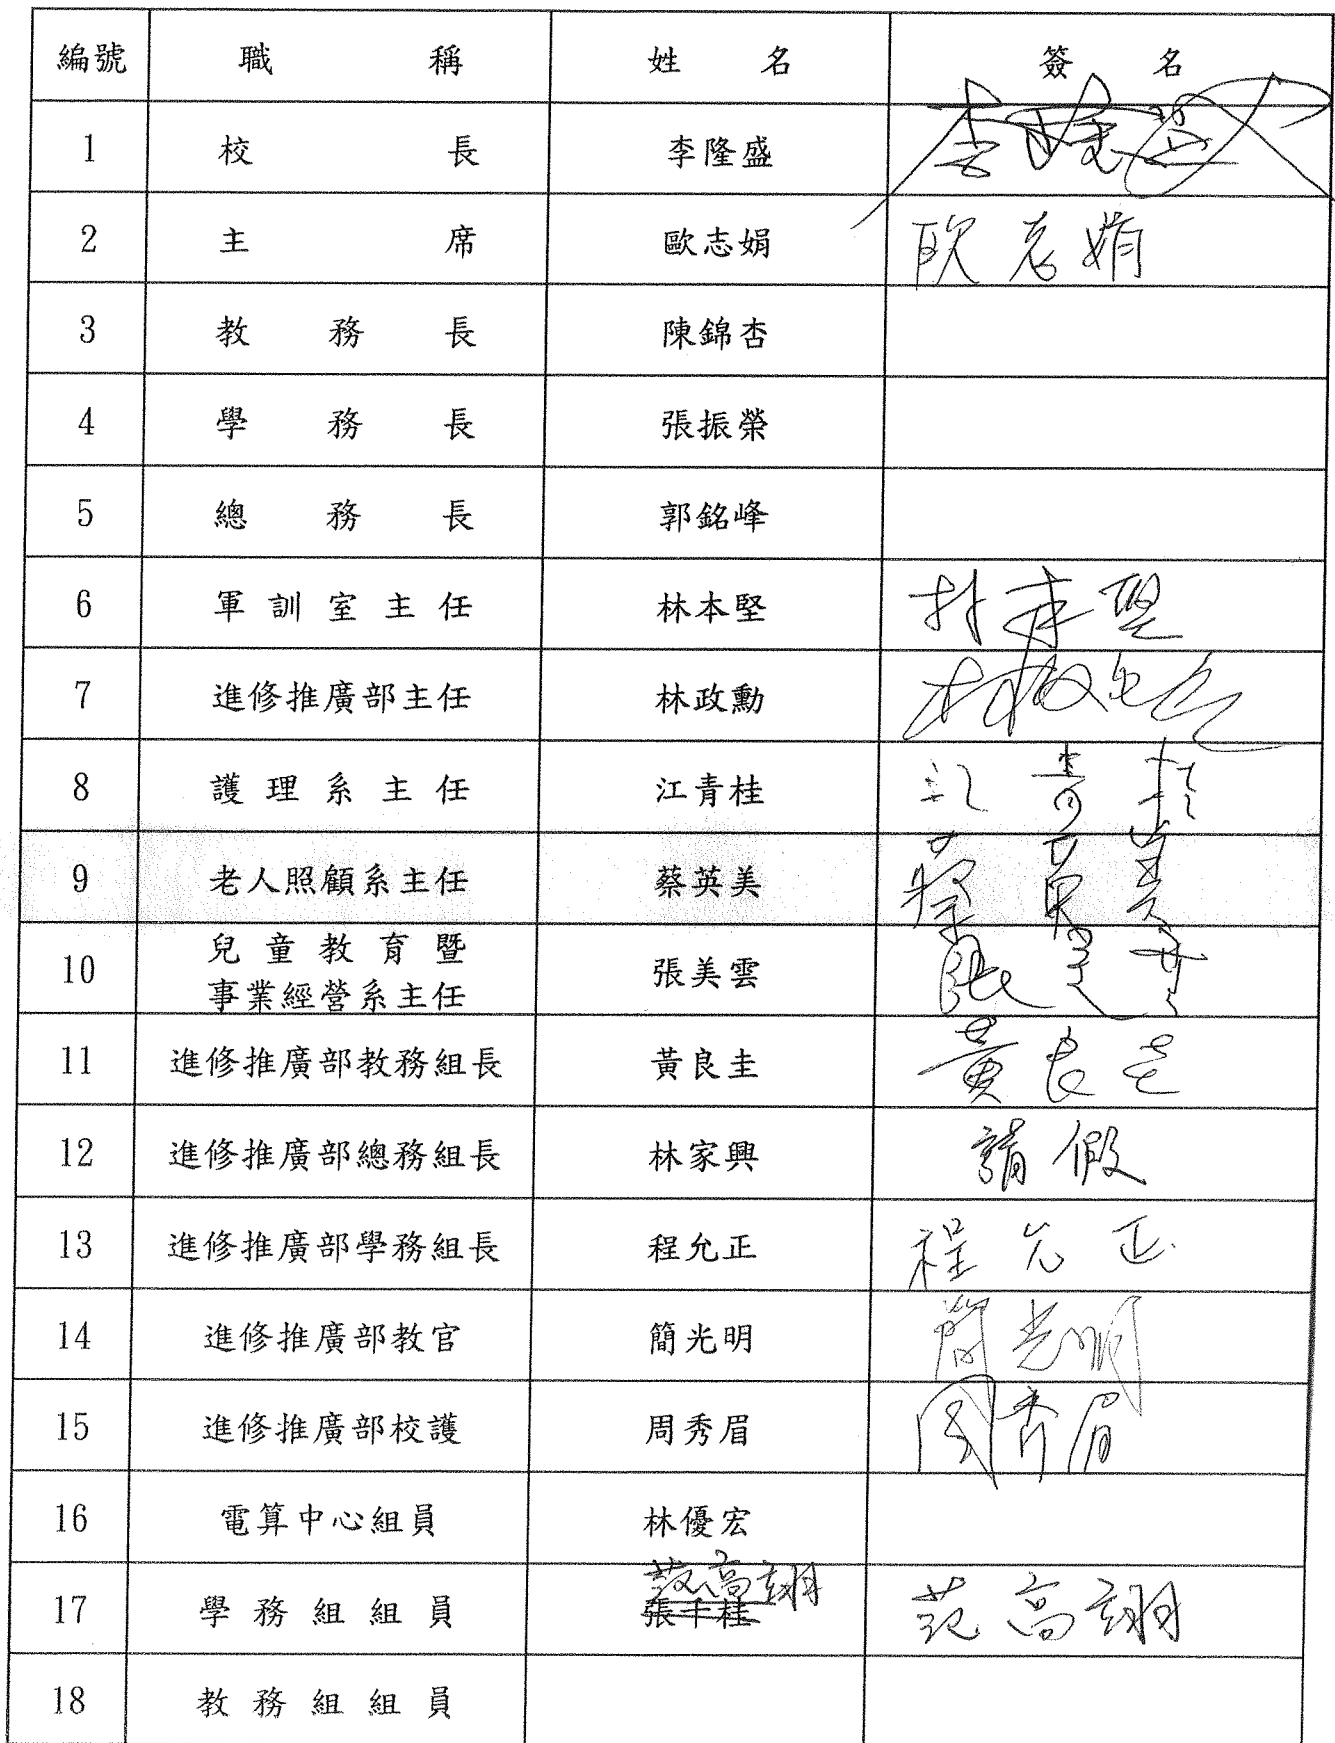 編號 職稱 姓名 簽名
1 校長 李隆盛 李隆盛
2 主席 歐志娟 欧志娟
3 教務長 陳錦杏
4 學務長 張振榮
5 總務長 郭銘峰
6 軍訓室主任 林本堅 林本堅
7 進修推廣部主任 林政勳 林政勳
8 護理系主任 江青桂 江青桂
9 老人照顧系主任 蔡英美 蔡英美
10 兒童教育暨
事業經營系主任 張美雲 張美雲
11 進修推廣部教務組長 黃良圭 黃良圭
12 進修推廣部總務組長 林家興 請假
13 進修推廣部學務組長 程允正 程允正
14 進修推廣部教官 簡光明 簡光明
15 進修推廣部校護 周秀眉 周秀眉
16 電算中心組員 林優宏
范高翊
17 學務組組員 張千桂 范高翊
18 教務組組員